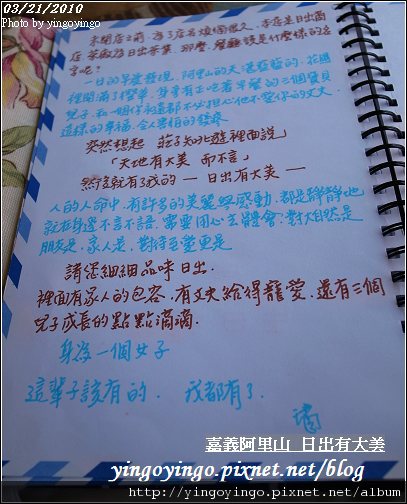 03/21/2010
Photo by yingoyingo
未開店之前.為了店名煩惱很久.本店是日出商
店.茶廠為日出茶葉 那麼.餐廳該是什麼樣的名
字呢?
一日的早晨發現.阿里山的天湛藍藍的.花園
裡開滿了櫻草.身旁有正吃著早餐的三個寶貝
兒子.和一個你永遠都不必擔心他不愛你的丈夫.
這樣的幸福.令人害怕的發慌
突然想起 莊子知北遊裡面說
「天地有大美 而不言」
然後就有了我的 — 日出有大美 —
人的人命中.有許多的美麗與感動.都是靜靜地
就在身邊不言不語.需要用心去體會.對大自然是
朋友是.家人是.對待至愛更是
請您細細品味日出.
裡面有家人的包容.有丈夫給得寵愛.還有三個
兒子成長的點點滴滴.
身為一個女子
這輩子該有的. 我都有了.
嘉義阿里山 日出有大美
yingoyingo.pixnet.net/blog
http://yingoyingo.pixnet.net/album